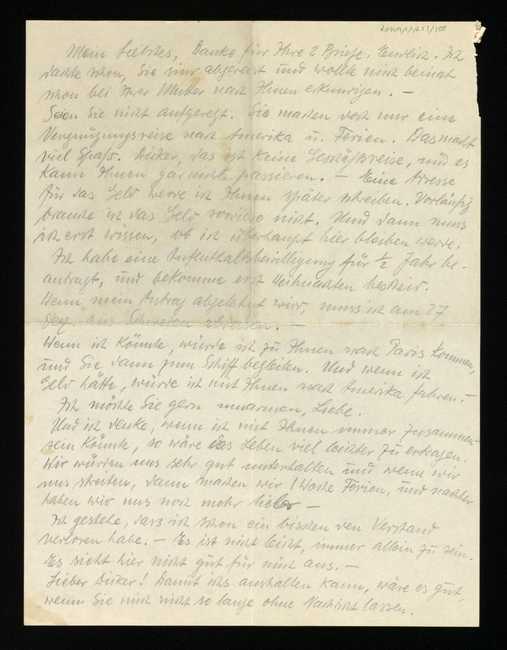 Mein Liebstes, Danke für Ihre 2 Briefe. Endlich. Ich
dachte schon, Sie sind abgereist und wollte mich beinah
schon bei Ihrer Mutter nach Ihnen erkundigen. —
Seien Sie nicht aufgeregt. Sie machen doch nur eine
Vergnügungsreise nach Amerika u. Ferien. Das macht
viel Spaß. das ist keine Geschäftsreise, und es
kann Ihnen gar nichts passieren. — Eine Adresse
für das Geld werde ich Ihnen später schreiben. Vorläufig
brauche ich das Geld sowieso nicht. Und dann muss
ich erst wissen, ob ich überhaupt hier bleiben werde.
Ich habe eine Aufenthaltsbewilligung für ½ Jahr be-
antragt, und bekomme erst Weihnachten Bescheid.
Wenn mein Antrag abgelehnt wird, muss ich am 27
Dez. aus Schweden abreisen. —
Wenn ich könnte, würde ich zu Ihnen nach Paris kommen,
und Sie dann zum Schiff begleiten. Und wenn ich
Geld hätte, würde ich mit Ihnen nach Amerika fahren. —
Ich möchte Sie gern umarmen, Liebe.
Und ich denke, wenn ich mit Ihnen immer zusammen
sein könnte, so wäre das Leben viel leichter zu ertragen.
Wir würden uns sehr gut unterhalten und wenn wir
uns streiten, dann machen wir 1 Woche Ferien, und nachher
haben wir uns noch mehr lieber —
Ich gestehe, dass ich schon ein bischen den Verstand
verloren habe. — Es ist nicht leicht, immer allein zu sein.
Es sieht hier nicht gut für mich aus. —
Lieber ! Damit ichs aushalten kann, wäre es gut,
wenn Sie mich nicht so lange ohne Nachricht lassen.